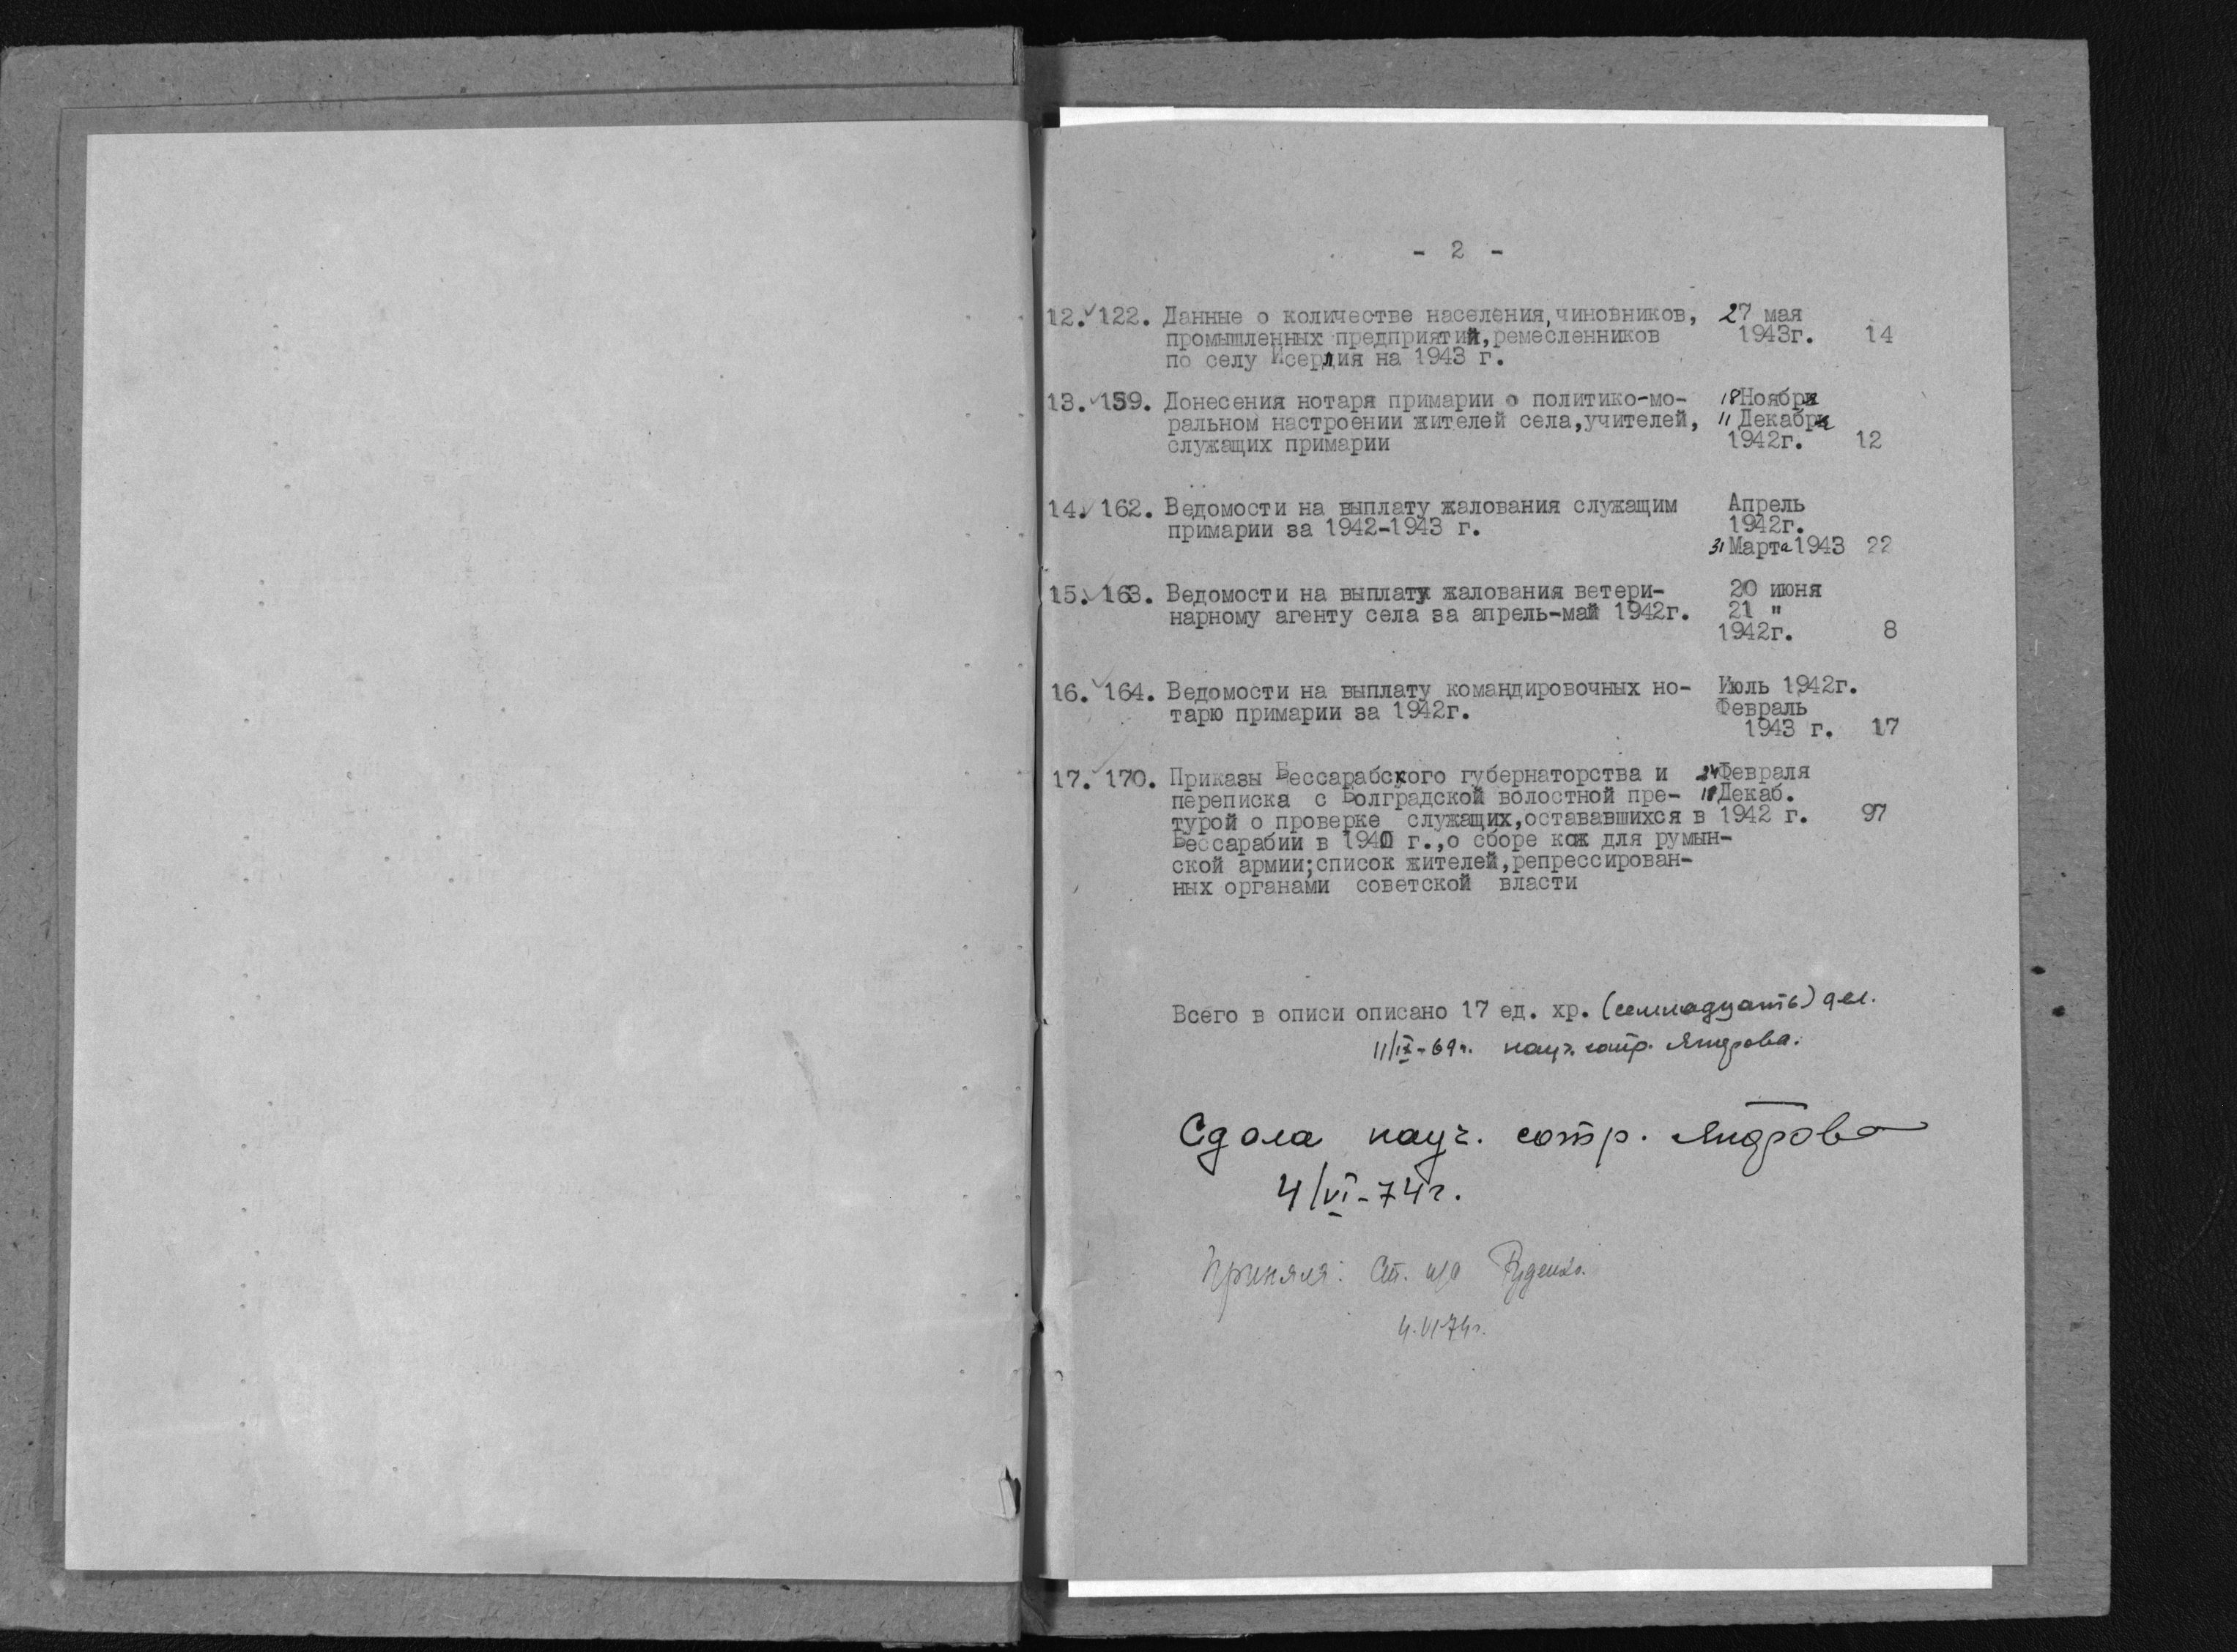 - 2 -
12. 122. Данные о количестве населения, чиновников, 27 мая
промышленных предприятий, ремесленников 1943г. 14
по селу Исерлия на 1943 г.
13. 159. Донесения нотаря примарии о политико-мо- 18 Ноября
ральном настроении жителей села, учителей, 11 Декабря
служащих примарии 1942г. 12
14. 162. Ведомости на выплату жалования служащим Апрель
примарии за 1942-1943 г. 1942г.
31 Марта 1943 22
15. 163. Ведомости на выплату жалования ветери- 20 июня
нарному агенту села за апрель-май 1942г. 21 "
1942г. 8
16. 164. Ведомости на выплату командировочных но- Июль 1942г.
тарю примарии за 1942г. Февраль
1943 г. 17
17. 170. Приказы Бессарабского губернаторства и 24 Февраля
переписка с Болградской волостной пре- 18 Декаб.
турой о проверке служащих, остававшихся в 1942 г. 97
Бессарабии в 1940 г., о сборе кож для румын-
ской армии; список жителей, репрессирован-
ных органами советской власти
Всего в описи описано 17 ед. хр. (семнадцать) дел.
11/IX-69г. науч. сотр. Ядрова.
Сдала науч. сотр. Ядрова
4/VI-74г.
Приняла: Ст. н/с Руденко.
4.VI-74г.